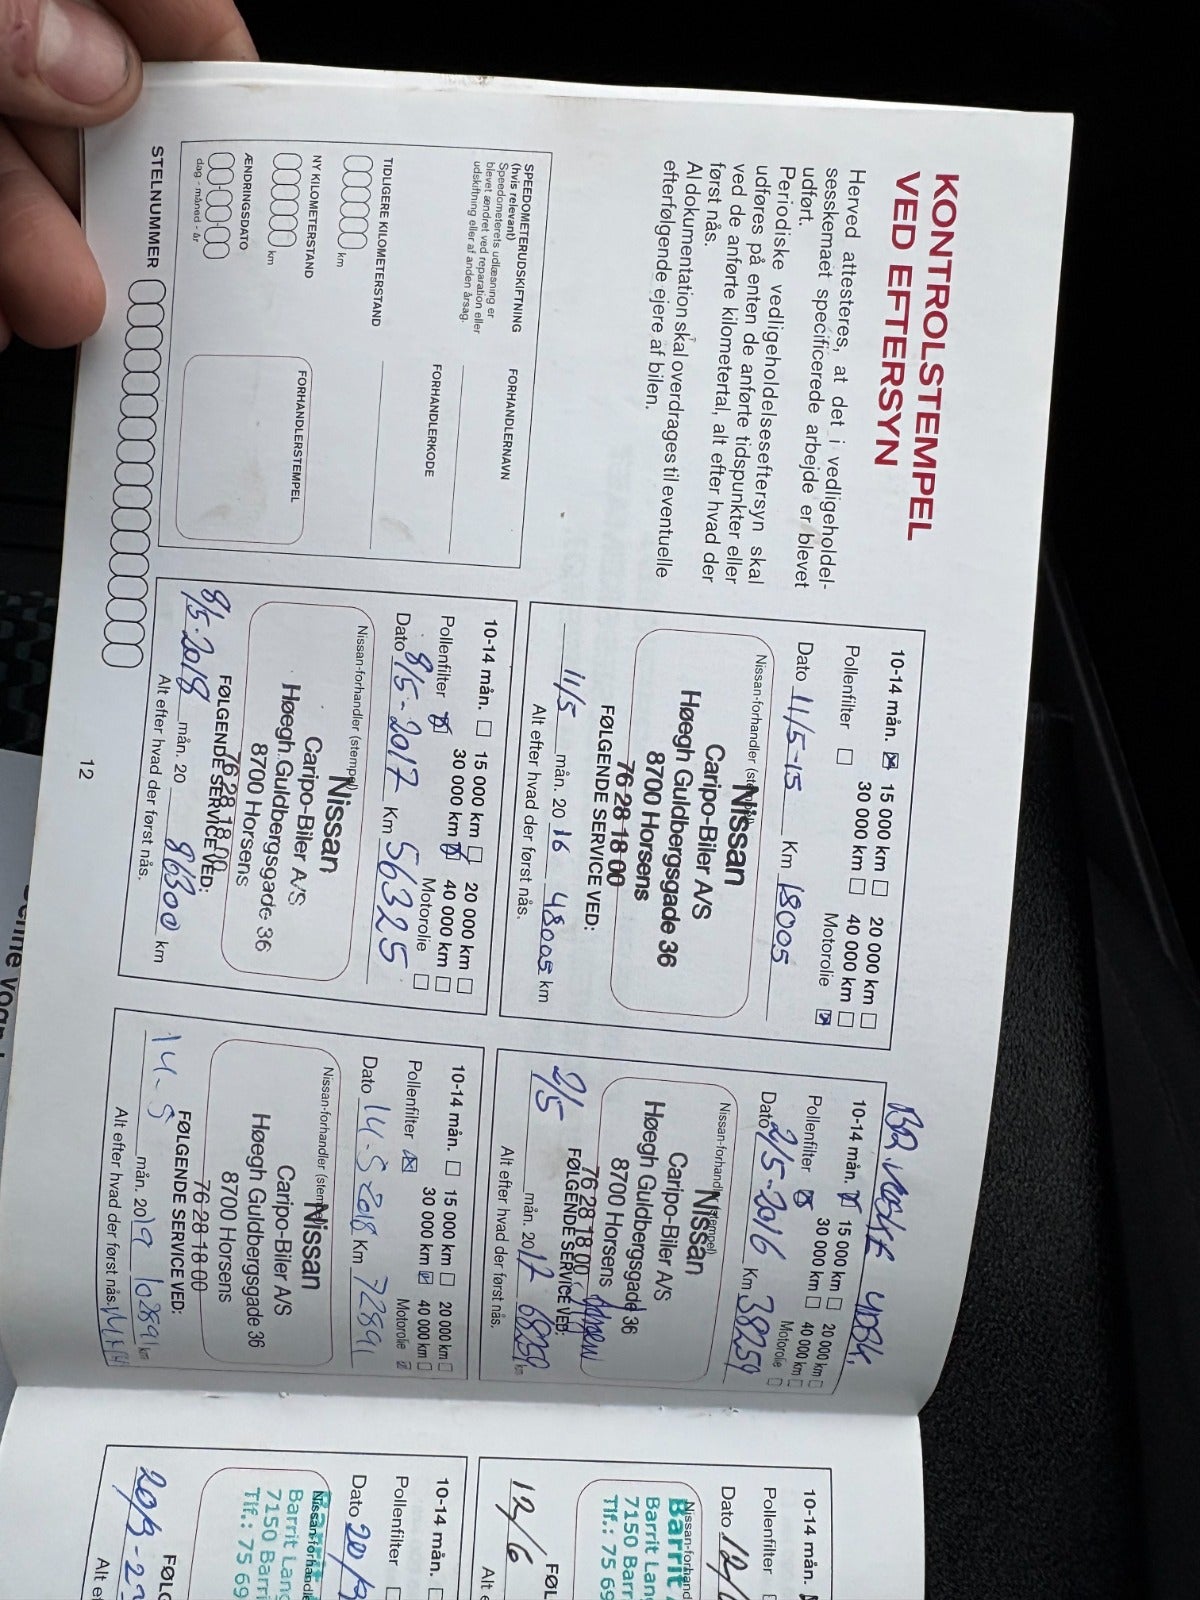 KONTROLSTEMPEL
VED EFTERSYN
Herved attesteres, at det i vedligeholdel-
sesskemaet specificerede arbejde er blevet
udført.
Periodiske vedligeholdelseseftersyn skal
udføres på enten de anførte tidspunkter eller
ved de anførte kilometertal, alt efter hvad der
først nås.
Al dokumentation skal overdrages til eventuelle
efterfølgende ejere af bilen.
SPEEDOMETERUDSKIFTNING
(hvis relevant)
Speedometerets udlæsning er
blevet ændret ved reparation eller
udskiftning eller af anden årsag.
TIDLIGERE KILOMETERSTAND
km
NY KILOMETERSTAND
km
ÆNDRINGSDATO
dag - måned - år
FORHANDLERNAVN
FORHANDLERKODE
FORHANDLERSTEMPEL
STELNUMMER
10-14 mån. 15 000 km 20 000 km
30 000 km 40 000 km
Pollenfilter Motorolie
Dato 11/5-15 Km 18005
Nissan-forhandler
Nissan
Caripo-Biler A/S
Høegh Guldbergsgade 36
8700 Horsens
76 28 18 00
FØLGENDE SERVICE VED:
11/5 mån. 2016 48005 km
Alt efter hvad der først nås.
10-14 mån. 15 000 km 20 000 km
30 000 km 40 000 km
Pollenfilter Motorolie
Dato 2/5-2016 Km 38259
Nissan-forhandler (stempel)
Nissan
Caripo-Biler A/S
Høegh Guldbergsgade 36
8700 Horsens
76 28 18 00
FØLGENDE SERVICE VED:
2/5 mån. 2017 68259 km
Alt efter hvad der først nås.
10-14 mån. 15 000 km 20 000 km
30 000 km 40 000 km
Pollenfilter Motorolie
Dato 8/5-2017 Km 56325
Nissan-forhandler (stempel)
Nissan
Caripo-Biler A/S
Høegh Guldbergsgade 36
8700 Horsens
76 28 18 00
FØLGENDE SERVICE VED:
8/5-2018 mån. 20 86300 km
Alt efter hvad der først nås.
10-14 mån. 15 000 km 20 000 km
30 000 km 40 000 km
Pollenfilter Motorolie
Dato 14-5 2018 Km 72891
Nissan-forhandler (stempel)
Nissan
Caripo-Biler A/S
Høegh Guldbergsgade 36
8700 Horsens
76 28 18 00
FØLGENDE SERVICE VED:
14-5 mån. 2019 102891 km
Alt efter hvad der først nås.
12
10-14 mån.
Pollenfilter
Dato 12/
Nissan-forhand
Barrit
Barrit Lang
7150 Barr
Tlf.: 75 69
FØL
12/6
Alt e
10-14 mån.
Pollenfilter
Dato 20/9
Nissan-forhandl
Barrit Lang
7150 Barri
Tlf.: 75 69
FØLG
20/9-22
Alt ef